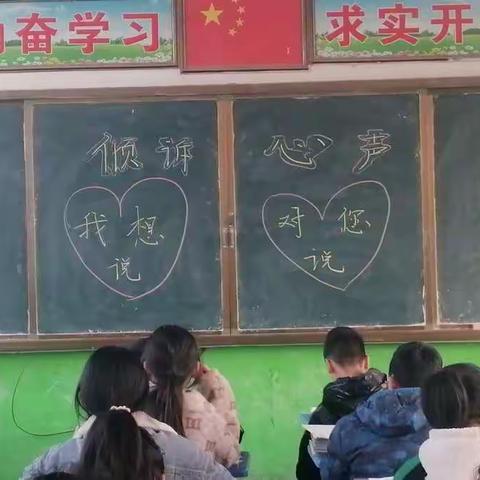 奋学习
求实开
倾诉 心声
我想
说
对您
说